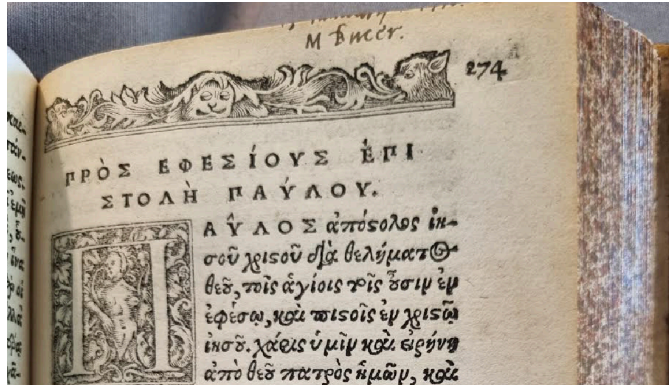 M Bucer.
274
ΠΡῸΣ ἘΦΕΣΊΟΥΣ ἘΠΙ
ΣΤΟΛῊ ΠΑΎΛΟΥ.
ΠΑΥ͂ΛΟΣ ἀπόςολος ἰη-
σοῦ χριςοῦ διὰ θελήματος
θεοῦ, τοῖς ἁγίοις τοῖς οὖσιν ἐν
ἐφέσῳ, καὶ πιςοῖς ἐν χριςῷ
ἰησοῦ. χάρις ὑμῖν καὶ εἰρήνη
ἀπὸ θεοῦ πατρὸς ἡμῶν, καὶ